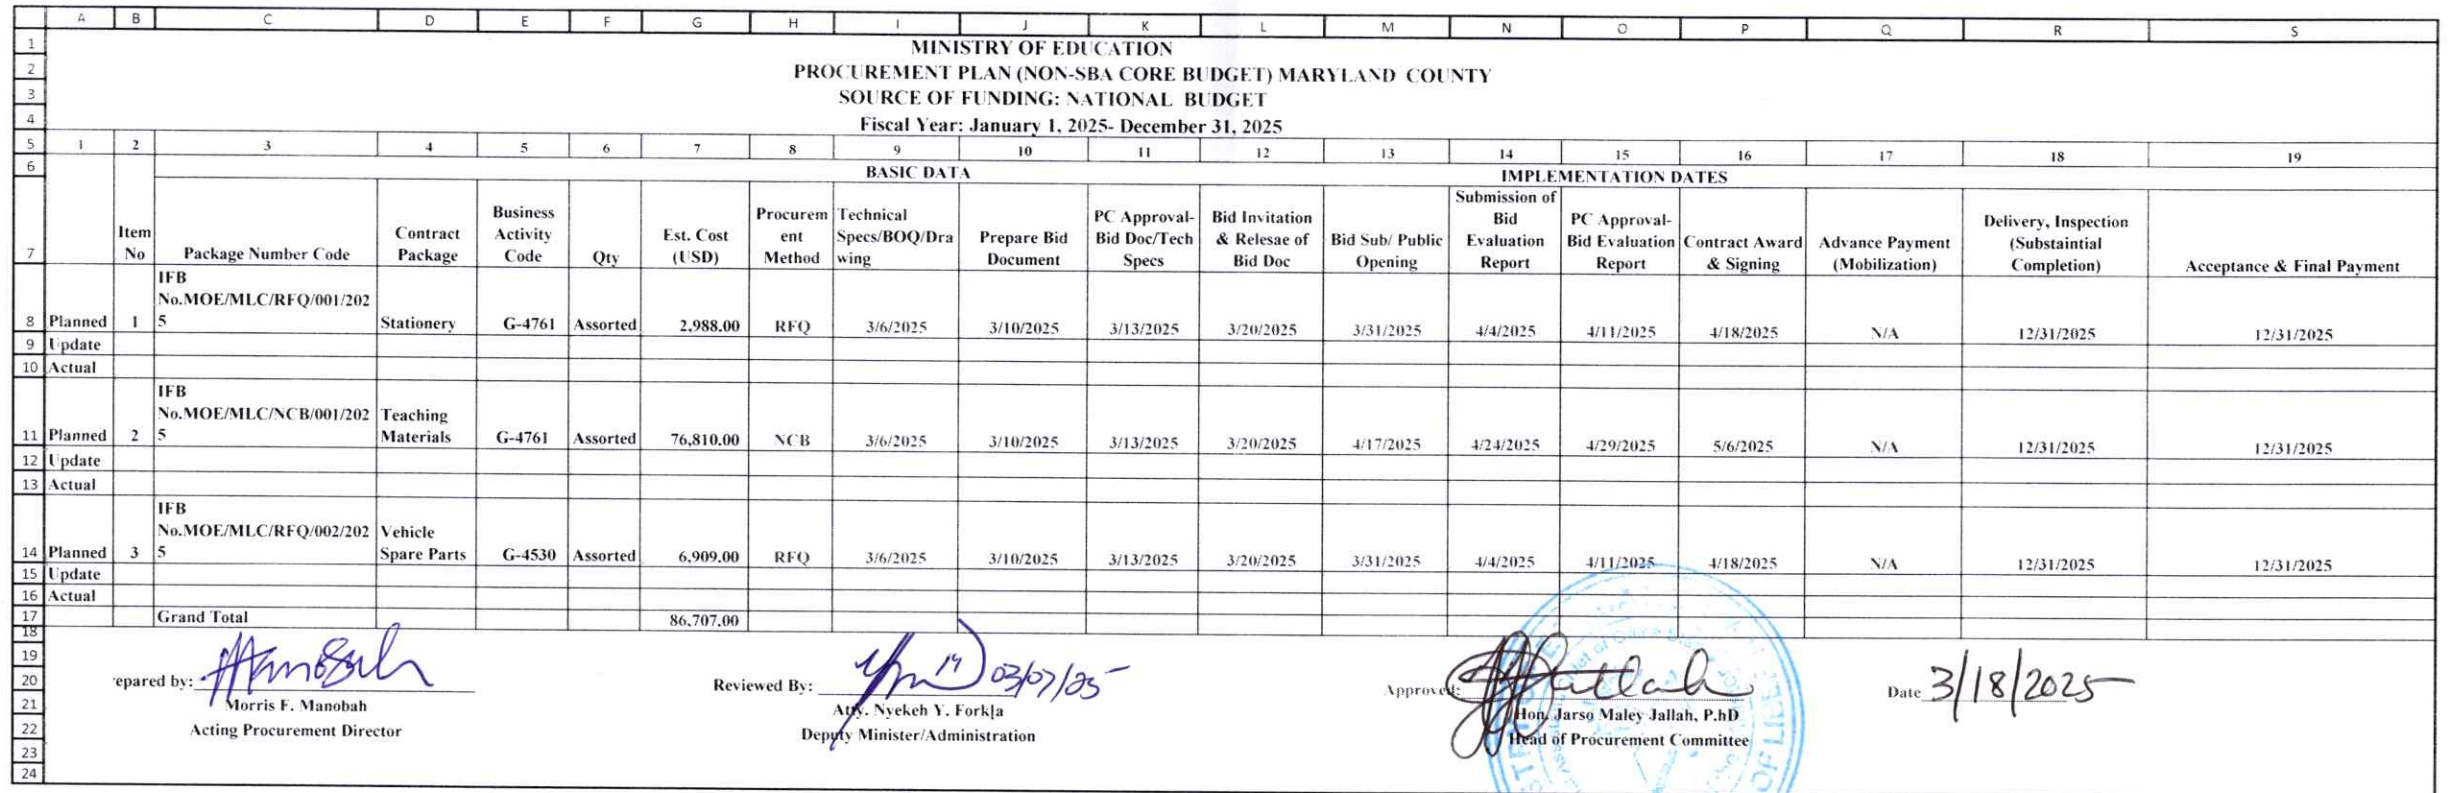 A B C D E F G H I J K L M N O P Q R S
1 MINISTRY OF EDUCATION
2 PROCUREMENT PLAN (NON-SBA CORE BUDGET) MARYLAND COUNTY
3 SOURCE OF FUNDING: NATIONAL BUDGET
4 Fiscal Year: January 1, 2025- December 31, 2025
5 1 2 3 4 5 6 7 8 9 10 11 12 13 14 15 16 17 18 19
6 BASIC DATA IMPLEMENTATION DATES
7
Item
No
Package Number Code
Contract
Package
Business
Activity
Code
Qty
Est. Cost
(USD)
Procurem
ent
Method
Technical
Specs/BOQ/Dra
wing
Prepare Bid
Document
PC Approval-
Bid Doc/Tech
Specs
Bid Invitation
& Relesae of
Bid Doc
Bid Sub/ Public
Opening
Submission of
Bid
Evaluation
Report
PC Approval-
Bid Evaluation
Report
Contract Award
& Signing
Advance Payment
(Mobilization)
Delivery, Inspection
(Substaintial
Completion)
Acceptance & Final Payment
IFB
No.MOE/MLC/RFQ/001/202
8 Planned 1 5 Stationery G-4761 Assorted 2,988.00 RFQ 3/6/2025 3/10/2025 3/13/2025 3/20/2025 3/31/2025 4/4/2025 4/11/2025 4/18/2025 N/A 12/31/2025 12/31/2025
9 Update
10 Actual
IFB
No.MOE/MLC/NCB/001/202 Teaching
11 Planned 2 5 Materials G-4761 Assorted 76,810.00 NCB 3/6/2025 3/10/2025 3/13/2025 3/20/2025 4/17/2025 4/24/2025 4/29/2025 5/6/2025 N/A 12/31/2025 12/31/2025
12 Update
13 Actual
IFB
No.MOE/MLC/RFQ/002/202 Vehicle
14 Planned 3 5 Spare Parts G-4530 Assorted 6,909.00 RFQ 3/6/2025 3/10/2025 3/13/2025 3/20/2025 3/31/2025 4/4/2025 4/11/2025 4/18/2025 N/A 12/31/2025 12/31/2025
15 Update
16 Actual
17 Grand Total 86,707.00
18
19
20 epared by: Reviewed By: 03/07/25 Approved: Date 3/18/2025
21 Morris F. Manobah Atty. Nyekeh Y. Forkla Hon. Jarso Maley Jallah, P.hD
22 Acting Procurement Director Deputy Minister/Administration Head of Procurement Committee
23
24